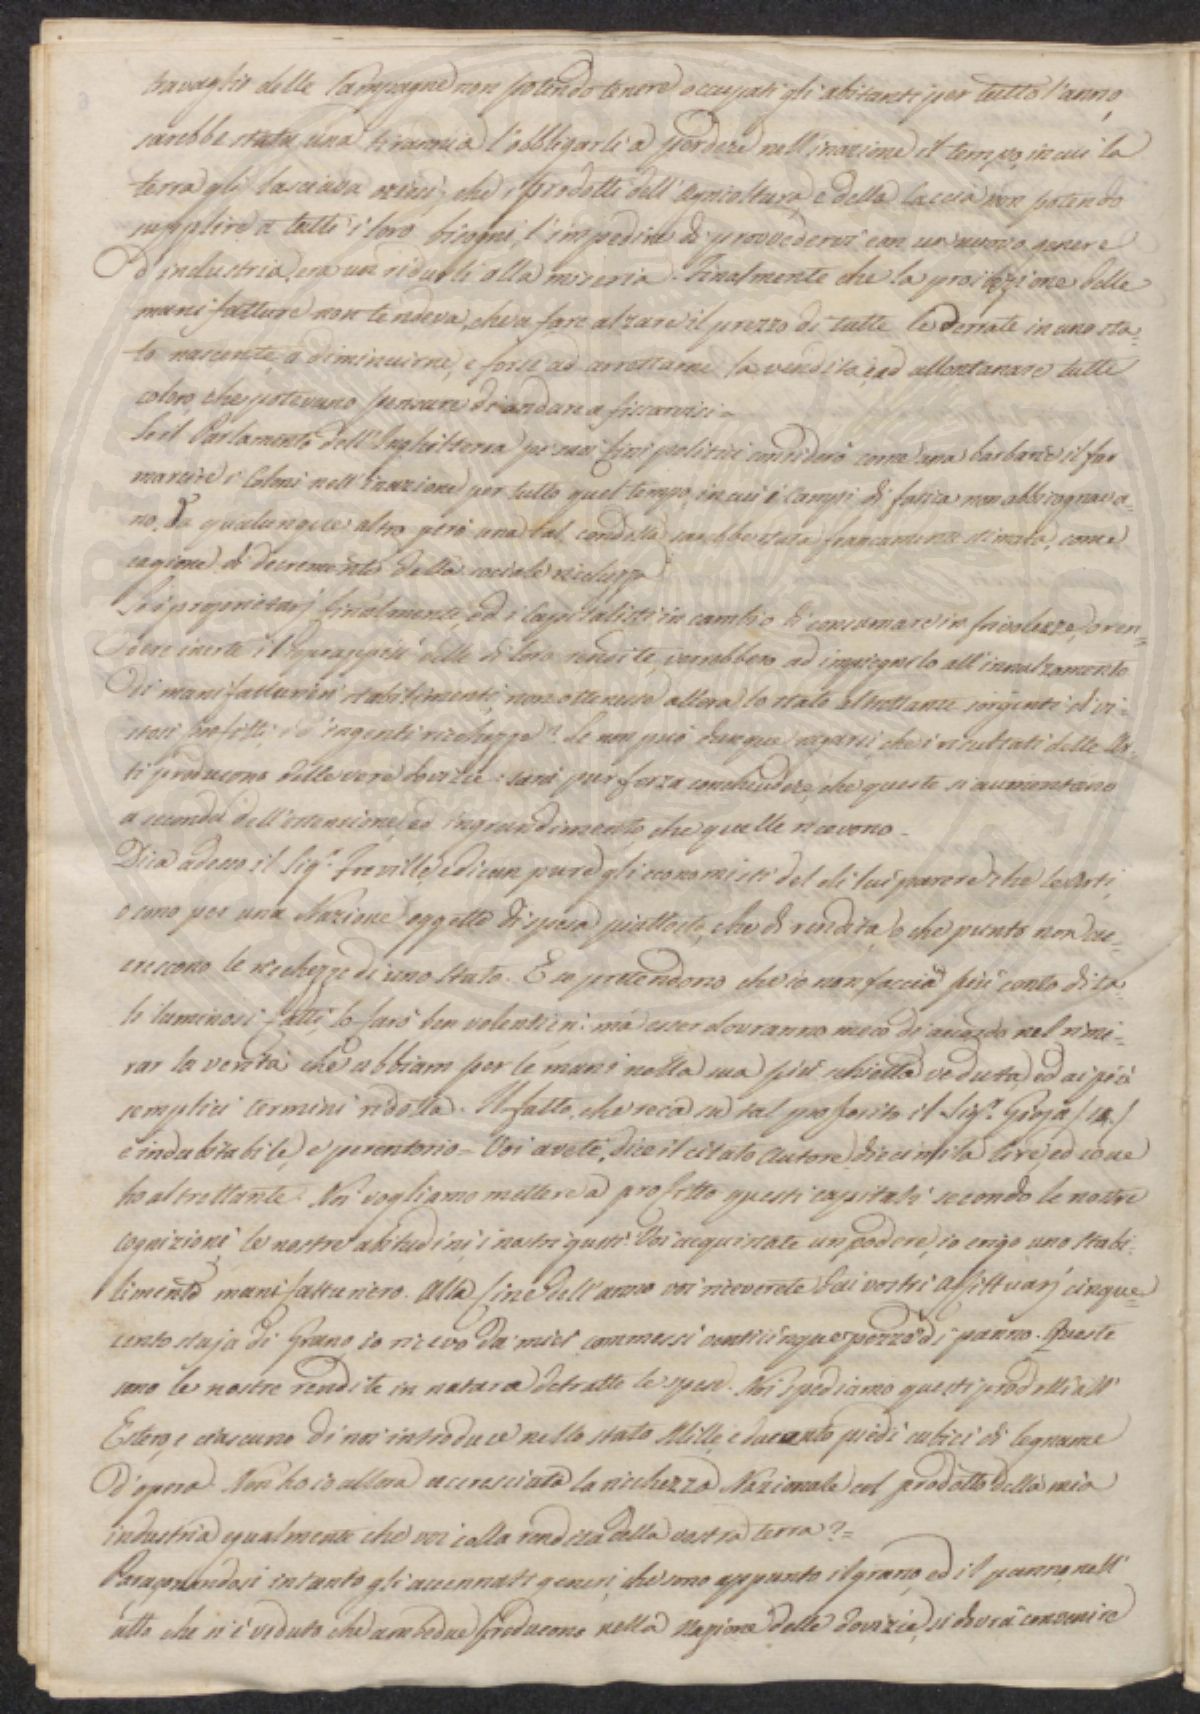 travaglio delle Campagne non potendo tenere occupati gli abitanti per tutto l'anno,
sarebbe stata una tirannia l'obbligarli a perdere nell'inazione il tempo, in cui la
terra gli lasciava oziosi; che i prodotti dell'Agricoltura, e della Caccia non potendo
supplire a tutti i loro bisogni, l'impedire di provvedervi con un nuovo genere
d'industria, era un ridurli alla miseria. Finalmente che la proibizione delle
manifatture non tendeva, che a fare alzare il prezzo di tutte le derrate in uno sta=
to nascente, a diminuirne, e forse ad arrestarne la vendita, ed allontanare tutti
coloro, che potevano pensare di andare a fissarvisi =
Se il Parlamento dell'Inghilterra pe' suoi fini politici considerò come una barbarie il far
marcire i Coloni nell'inazione per tutto quel tempo, in cui i Campi di fatica non abbisognava=
no. Da qualunque altro però una tal condotta sarebbe stata francamente stimata, come
cagione di decremento della sociale ricchezza.
Se i proprietarj finalmente, ed i Capitalisti in cambio di consumare in frivolezze, o ren=
dere inerte il soprappiù delle di loro rendite, vorrebbero ad impiegarlo all'innalzamento
di manifatturieri stabilimenti, non ottenesse allora lo stato altrettante sorgenti di vi=
stosi profitti, e d'ingenti ricchezze? Se non può dunque negarsi, che i risultati delle Ar=
ti producono delle vere dovizie: sarà pur forza conchiudere, che queste si aumentano
a seconda dell'estensione, ed ingrandimento, che quelle ricevono =
Dica adesso il Sig.r Freville, e dican pure gli economisti del di lui parere che le Arti
o sono per una Nazione oggetto di spesa piuttosto, che di rendita, o che punto non ac=
crescono le ricchezze di uno Stato. E se pretendono che io non faccia più conto di ta=
li luminosi fatti, lo farò ben volentieri: ma essi dovranno meco di accordo nel rimi=
rar la verità che abbiam per le mani nella sua più schietta veduta, ed ai più
semplici termini ridotta. Il fatto, che reca su tal proposito il Sig.r Gioja (14)
è indubitabile, e perentorio = Voi avete, dice il citato Autore, diecimila lire, ed io ne
ho altrettante. Noi vogliamo mettere a profitto questi capitali secondo le nostre
cognizioni, le nostre abitudini, i nostri gusti. Voi acquistate un podere, io erigo uno stabi=
limento manifatturiero. Alla fine dell'anno voi riceverete dai vostri Affittuarj cinque=
cento staja di Grano, io ricevo da' miei commessi venticinque pezze di panno. Queste
sono le nostre rendite in natura detratte le spese. Noi spediamo questi prodotti all'
Estero, e ciascuno di noi introduce nello stato Mille, e duecento piedi cubici di legname
d'opera. Non ho io allora accresciuta la ricchezza Nazionale col prodotto della mia
industria egualmente che voi colla rendita della vostra terra? =
Paragonandosi intanto gli accennati generi, che sono appunto il grano, ed il panno, nell'
atto che si è veduto che ambedue producono nella Nazione delle dovizie, si dovrà convenire